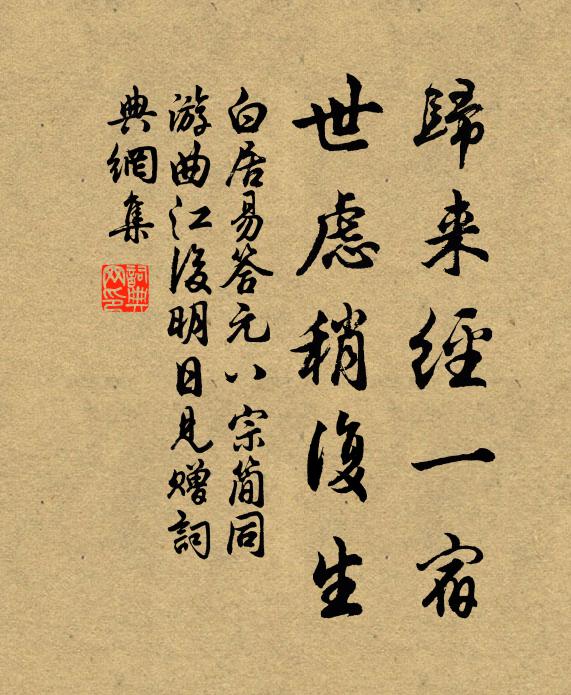 歸来經一宿
世慮稍復生
白居易答元八宗簡同
游曲江後明日見贈詞
典網集
詞典
网印